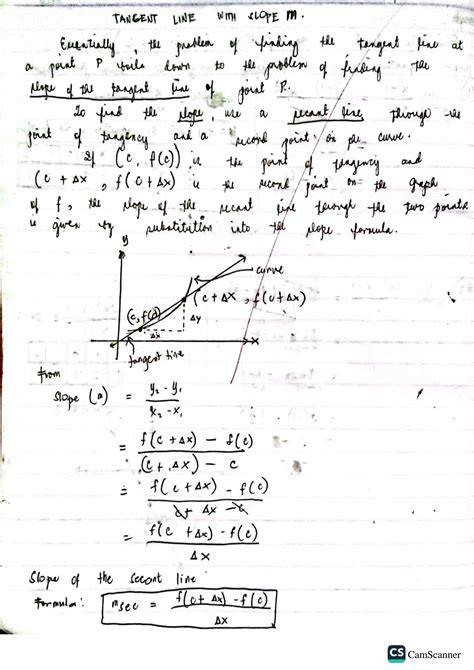 TANGENT LINE WITH SLOPE M.
Essentially, the problem of finding the tangent line at
a point P boils down to the problem of finding the
slope of the tangent line of point P.
To find the slope, use a secant line through the
point of tangency and a second point on the curve.
If (c, f(c)) is the point of tangency and
(c + Δx, f(c+Δx) is the second point on the graph
of f, the slope of the secant line through the two points
is given by substitution into the slope formula.
y
curve
(c + Δx, f(c+Δx)
(c, f(c))
Δy
Δx
x
tangent line
from
Slope (m) = y₂ - y₁
x₂ - x₁
= f(c + Δx) - f(c)
(c + Δx) - c
= f(c + Δx) - f(c)
c + Δx - c
= f(c + Δx) - f(c)
Δx
Slope of the secant line
Formula: msec = f(c+ Δx) - f(c)
Δx
CS CamScanner